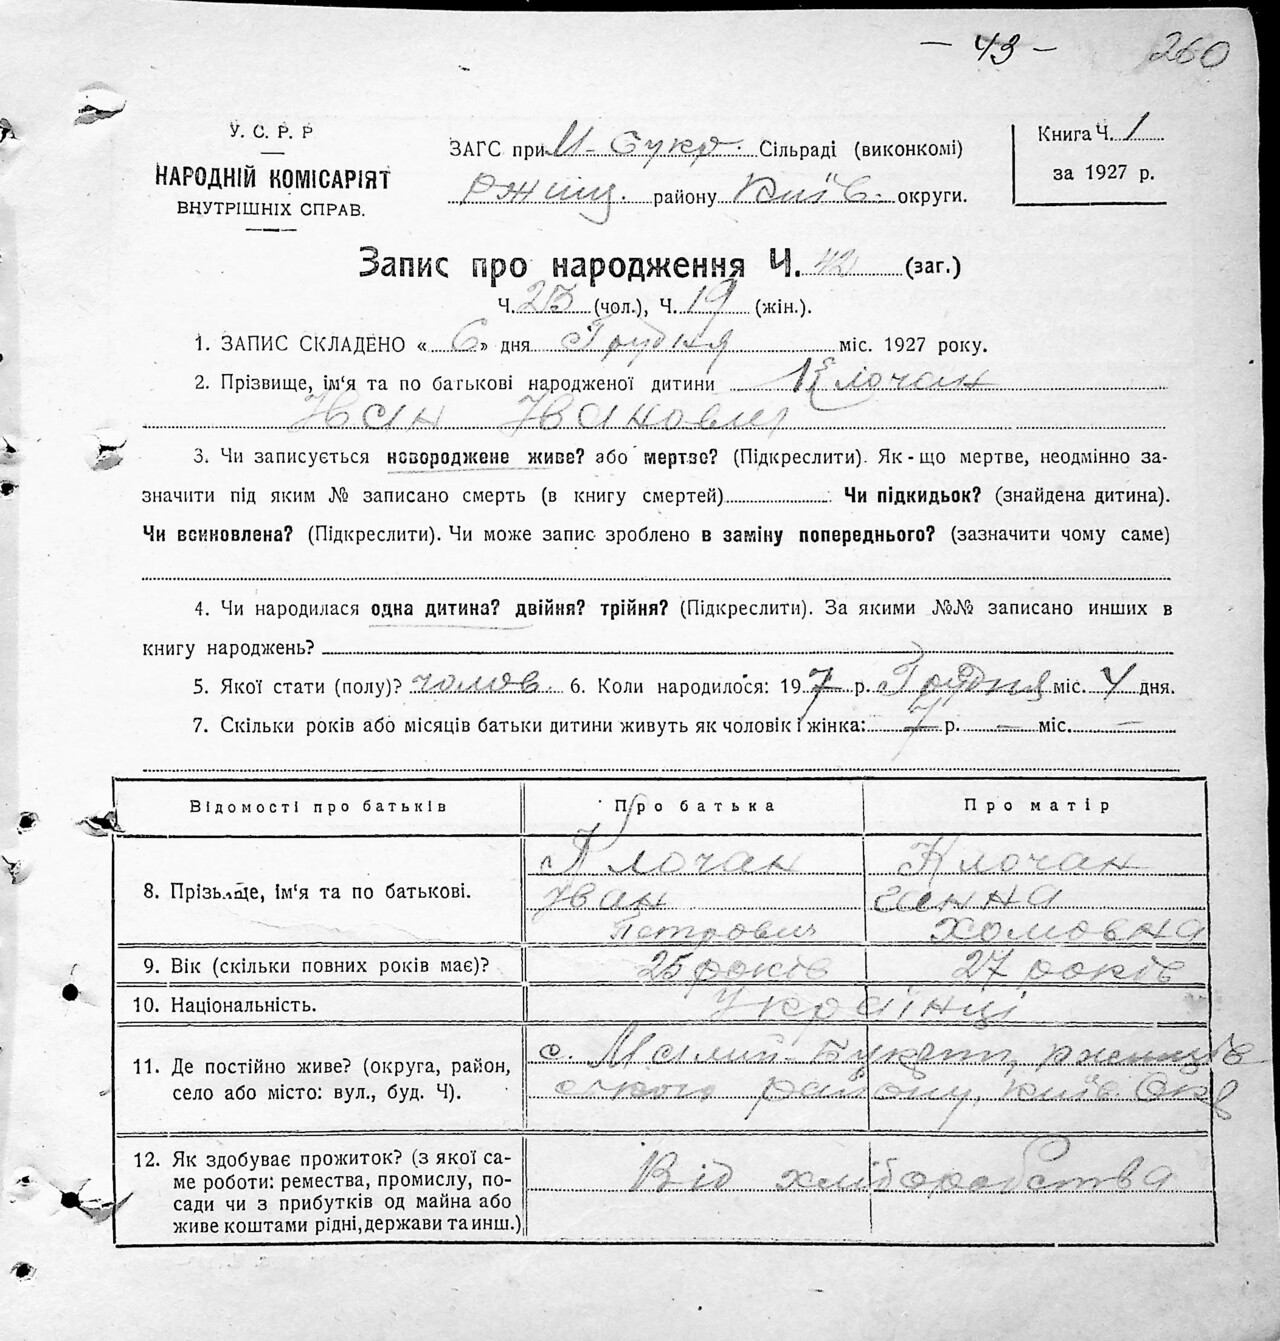 — 43 — 260
У. С. Р. Р
НАРОДНІЙ КОМІСАРІЯТ
ВНУТРІШНІХ СПРАВ.
ЗАГС при М-Букр. Сільраді (виконкомі)
Ржищ. району Київ. округи.
Книга Ч. 1
за 1927 р.
Запис про народження Ч. 42 (заг.)
Ч. 23 (чол.), Ч. 19 (жін.).
1. ЗАПИС СКЛАДЕНО « 6 » дня Грудня міс. 1927 року.
2. Прізвище, ім'я та по батькові народженої дитини Клочан
Іван Іванович
3. Чи записується новороджене живе? або мертве? (Підкреслити). Як-що мертве, неодмінно за-
значити під яким № записано смерть (в книгу смертей) Чи підкидьок? (знайдена дитина).
Чи всиновлена? (Підкреслити). Чи може запис зроблено в заміну попереднього? (зазначити чому саме)
4. Чи народилася одна дитина? двійня? трійня? (Підкреслити). За якими №№ записано инших в
книгу народжень?
5. Якої стати (полу)? чолов. 6. Коли народилося: 197 р. Грудня міс. 4 дня.
7. Скільки років або місяців батьки дитини живуть як чоловік і жінка: 7 р. — міс. —
Відомості про батьків Про батька Про матір
8. Прізьвще, ім'я та по батькові.
Клочан Клочан
Іван Ганна
Петрович Хомовна
9. Вік (скільки повних років має)? 25 років 27 років
10. Національність. Українці
11. Де постійно живе? (округа, район,
село або місто: вул., буд. Ч).
с. Малий-Букрин, Ржищів
ського району, Київ. Окр
12. Як здобуває прожиток? (з якої са-
ме роботи: ремества, промислу, по-
сади чи з прибутків од майна або
живе коштами рідні, держави та инш.)
Від хліборобства